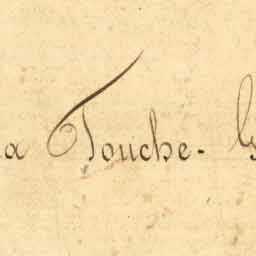 a Touche-